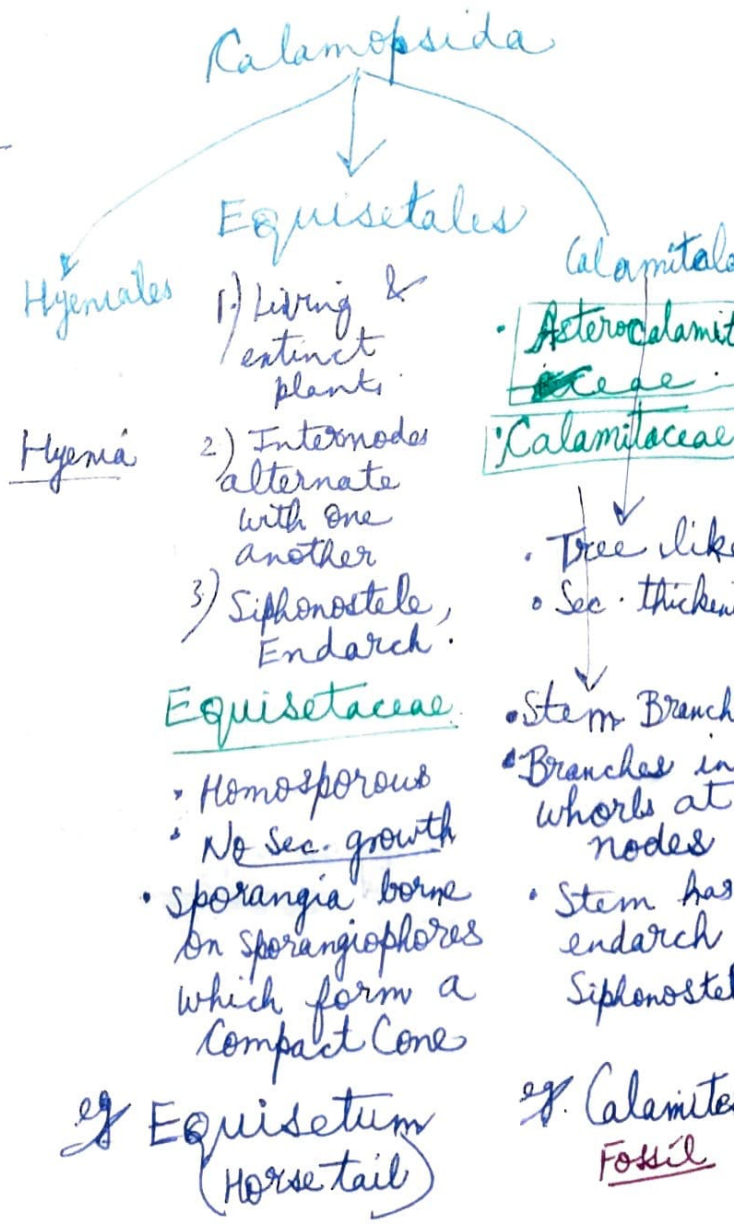 Calamopsida
Hyeniales
Hyenia
Equisetales
1.) Living &
extinct
plants.
2.) Internodes
alternate
with one
another
3.) Siphonostele,
Endarch.
Equisetaceae.
• Homosporous
• No Sec. growth
• Sporangia borne
on sporangiophores
which form a
Compact Cone
eg Equisetum
(Horse tail)
Calamitale
• Asterocalamit
aceae.
• Calamitaceae
• Tree like
• Sec. thicken
• Stem Branch
• Branches in
whorls at
nodes
• Stem has
endarch
Siphonostel
eg. Calamite
Fossil